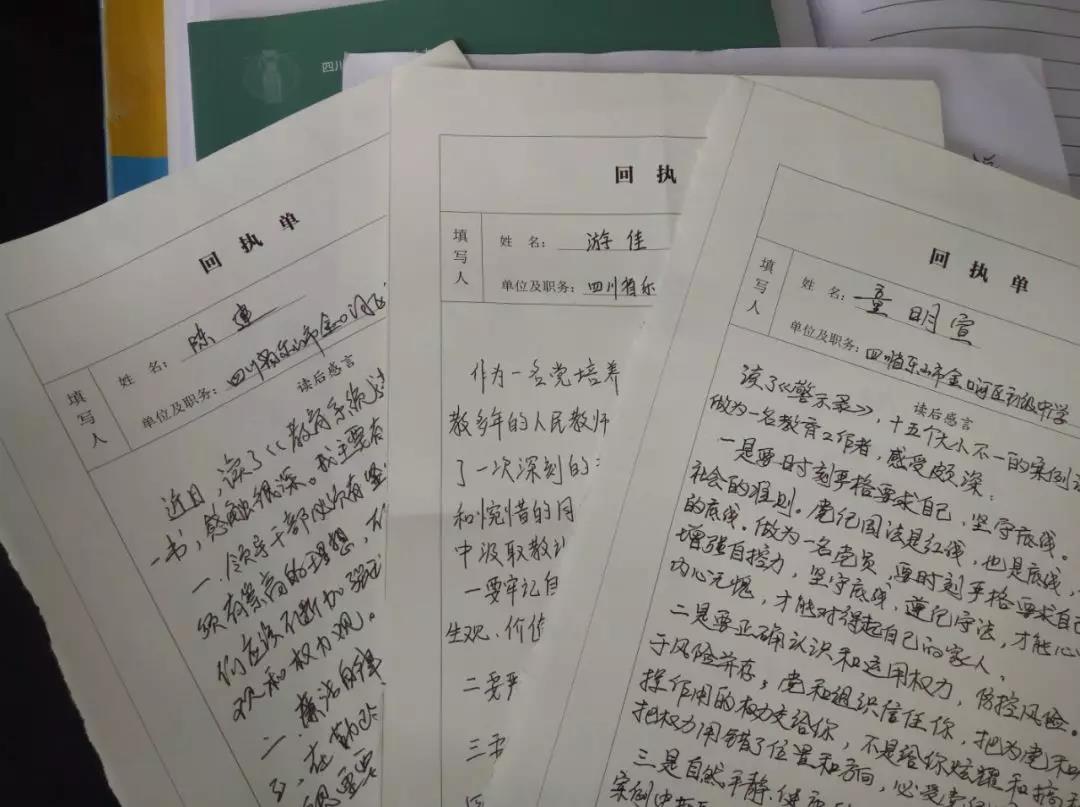 四川
回执单
填写人
姓名：
陈建
单位及职务：
四川省乐山市金口河区
读后感言
近日，读了《教育系统
一书，感触很深。我主要有
一、领导干部必须有坚
须有崇高的理想，
们应该不断加强
观和权力观。
二、廉洁自律
重要
回执
填写人
姓名：
游佳
单位及职务：
四川省乐
作为一名党培养
教多年的人民教师
了一次深刻的
和惋惜的同
中汲取教训
一要牢记自
生观、价值
二要严
三要
回执单
填写人
姓名：
童明宣
单位及职务：
四川省乐山市金口河区初级中学
读后感言
读了《警示录》，十五个大小不一的案例
做为一名教育工作者，感受颇深：
一是要时刻严格要求自己，坚守底线。
社会的准则。党纪国法是红线，也是底线，
的底线。做为一名党员，要时刻严格要求自己
增强自控力，坚守底线，遵纪守法，才能心
内心无愧，才能对得起自己的家人。
二是要正确认识和运用权力，防控风险。
于风险并存；党和组织信任你，把为党和
操作用的权力交给你，不是给你炫耀和搞
把权力用错了位置和方向，必受责
三是自然平静、健
案例中